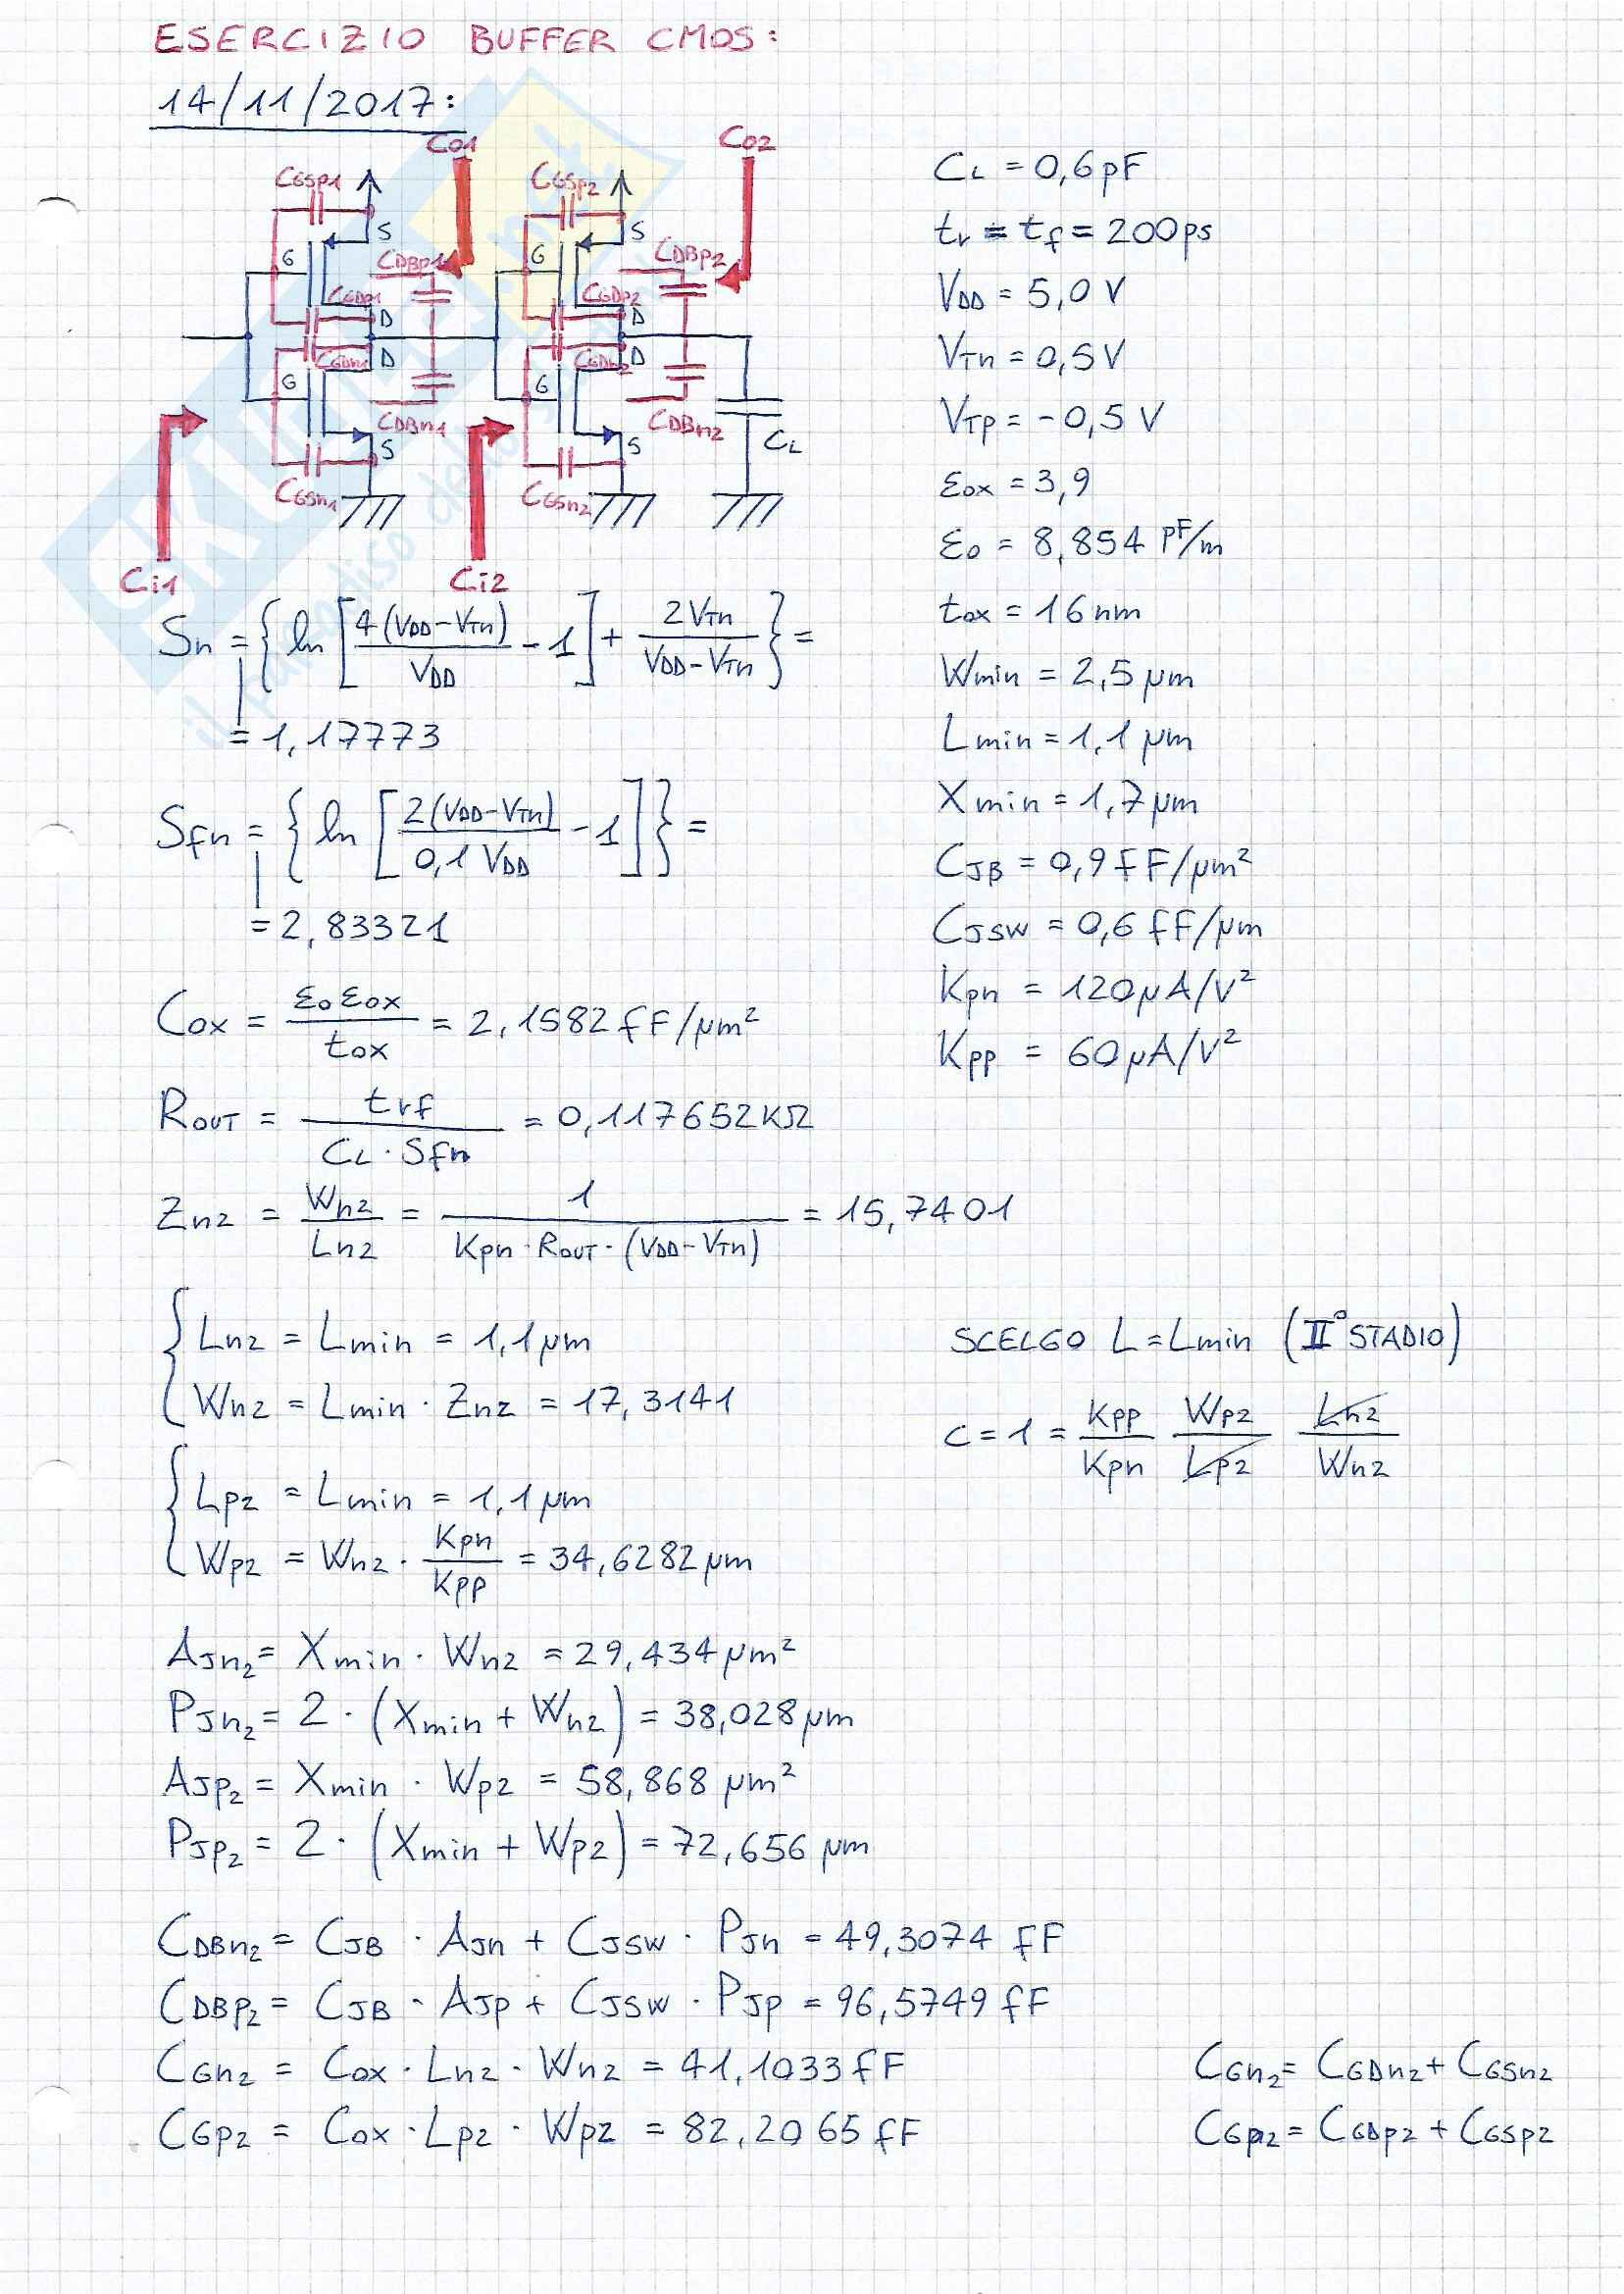 ESERCIZIO BUFFER CMOS:
14/11/2017:
Co1
Co2
CGSp1
CGSp2
S
S
G
G
CDBp1
CDBp2
CGDp1
CGDp2
D
D
CGDn1
CGDn2
D
D
G
G
CDBn1
CDBn2
S
S
CL
CGSn1
CGSn2
Ci1
Ci2
SKUOLA.net
il paradiso dello
CL = 0,6 pF
tr = tf = 200ps
VDD = 5,0 V
VTn = 0,5 V
VTp = -0,5 V
εox = 3,9
ε0 = 8,854 pF/m
tox = 16 nm
Wmin = 2,5 μm
Lmin = 1,1 μm
Xmin = 1,7 μm
CJB = 0,9 fF/μm²
CJSW = 0,6 fF/μm
Kpn = 120 μA/V²
Kpp = 60 μA/V²
Sn = { ln [ 4(VDD-VTn)/VDD - 1 ] + 2VTn/(VDD-VTn) } =
= 1,17773
Sfn = { ln [ 2(VDD-VTn)/0,1 VDD - 1 ] } =
= 2,83321
Cox = ε0 εox / tox = 2,1582 fF/μm²
ROUT = trf / (CL · Sfn) = 0,117652 KΩ
Zn2 = Wn2/Ln2 = 1 / (Kpn · ROUT · (VDD-VTn)) = 15,7401
{ Ln2 = Lmin = 1,1 μm
Wn2 = Lmin · Zn2 = 17,3141
SCELGO L = Lmin (II° STADIO)
C = 1 = Kpp/Kpn Wp2/Lp2 Ln2/Wn2
{ Lp2 = Lmin = 1,1 μm
Wp2 = Wn2 · Kpn/Kpp = 34,6282 μm
AJn2 = Xmin · Wn2 = 29,434 μm²
PJn2 = 2 · (Xmin + Wn2) = 38,028 μm
AJp2 = Xmin · Wp2 = 58,868 μm²
PJp2 = 2 · (Xmin + Wp2) = 72,656 μm
CDBn2 = CJB · AJn + CJSW · PJn = 49,3074 fF
CDBp2 = CJB · AJp + CJSW · PJp = 96,5749 fF
CGn2 = Cox · Ln2 · Wn2 = 41,1033 fF
CGn2 = CGDn2 + CGSn2
CGp2 = Cox · Lp2 · Wp2 = 82,2065 fF
CGp2 = CGDp2 + CGSp2